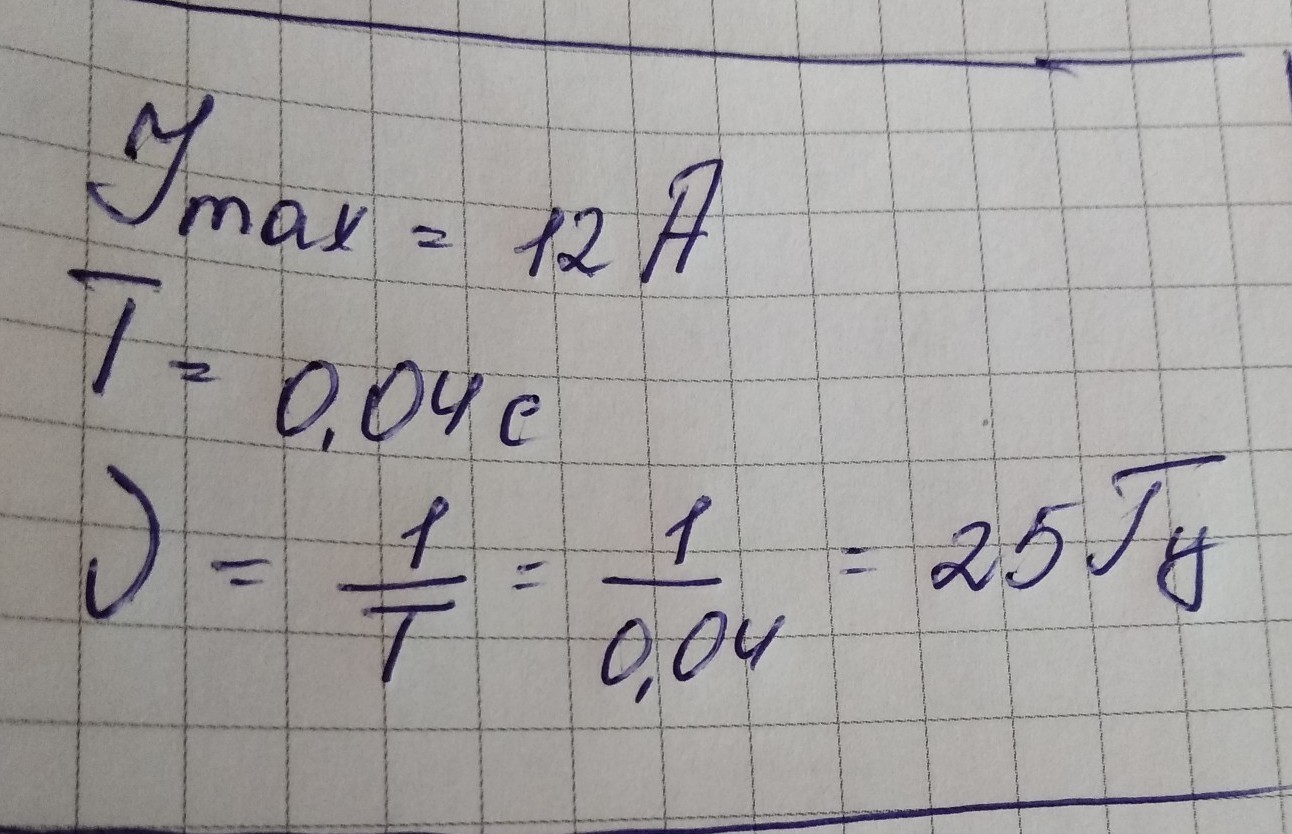 Jmax = 12 A
T = 0,04 c
ν = 1/T = 1/0,04 = 25 Гц